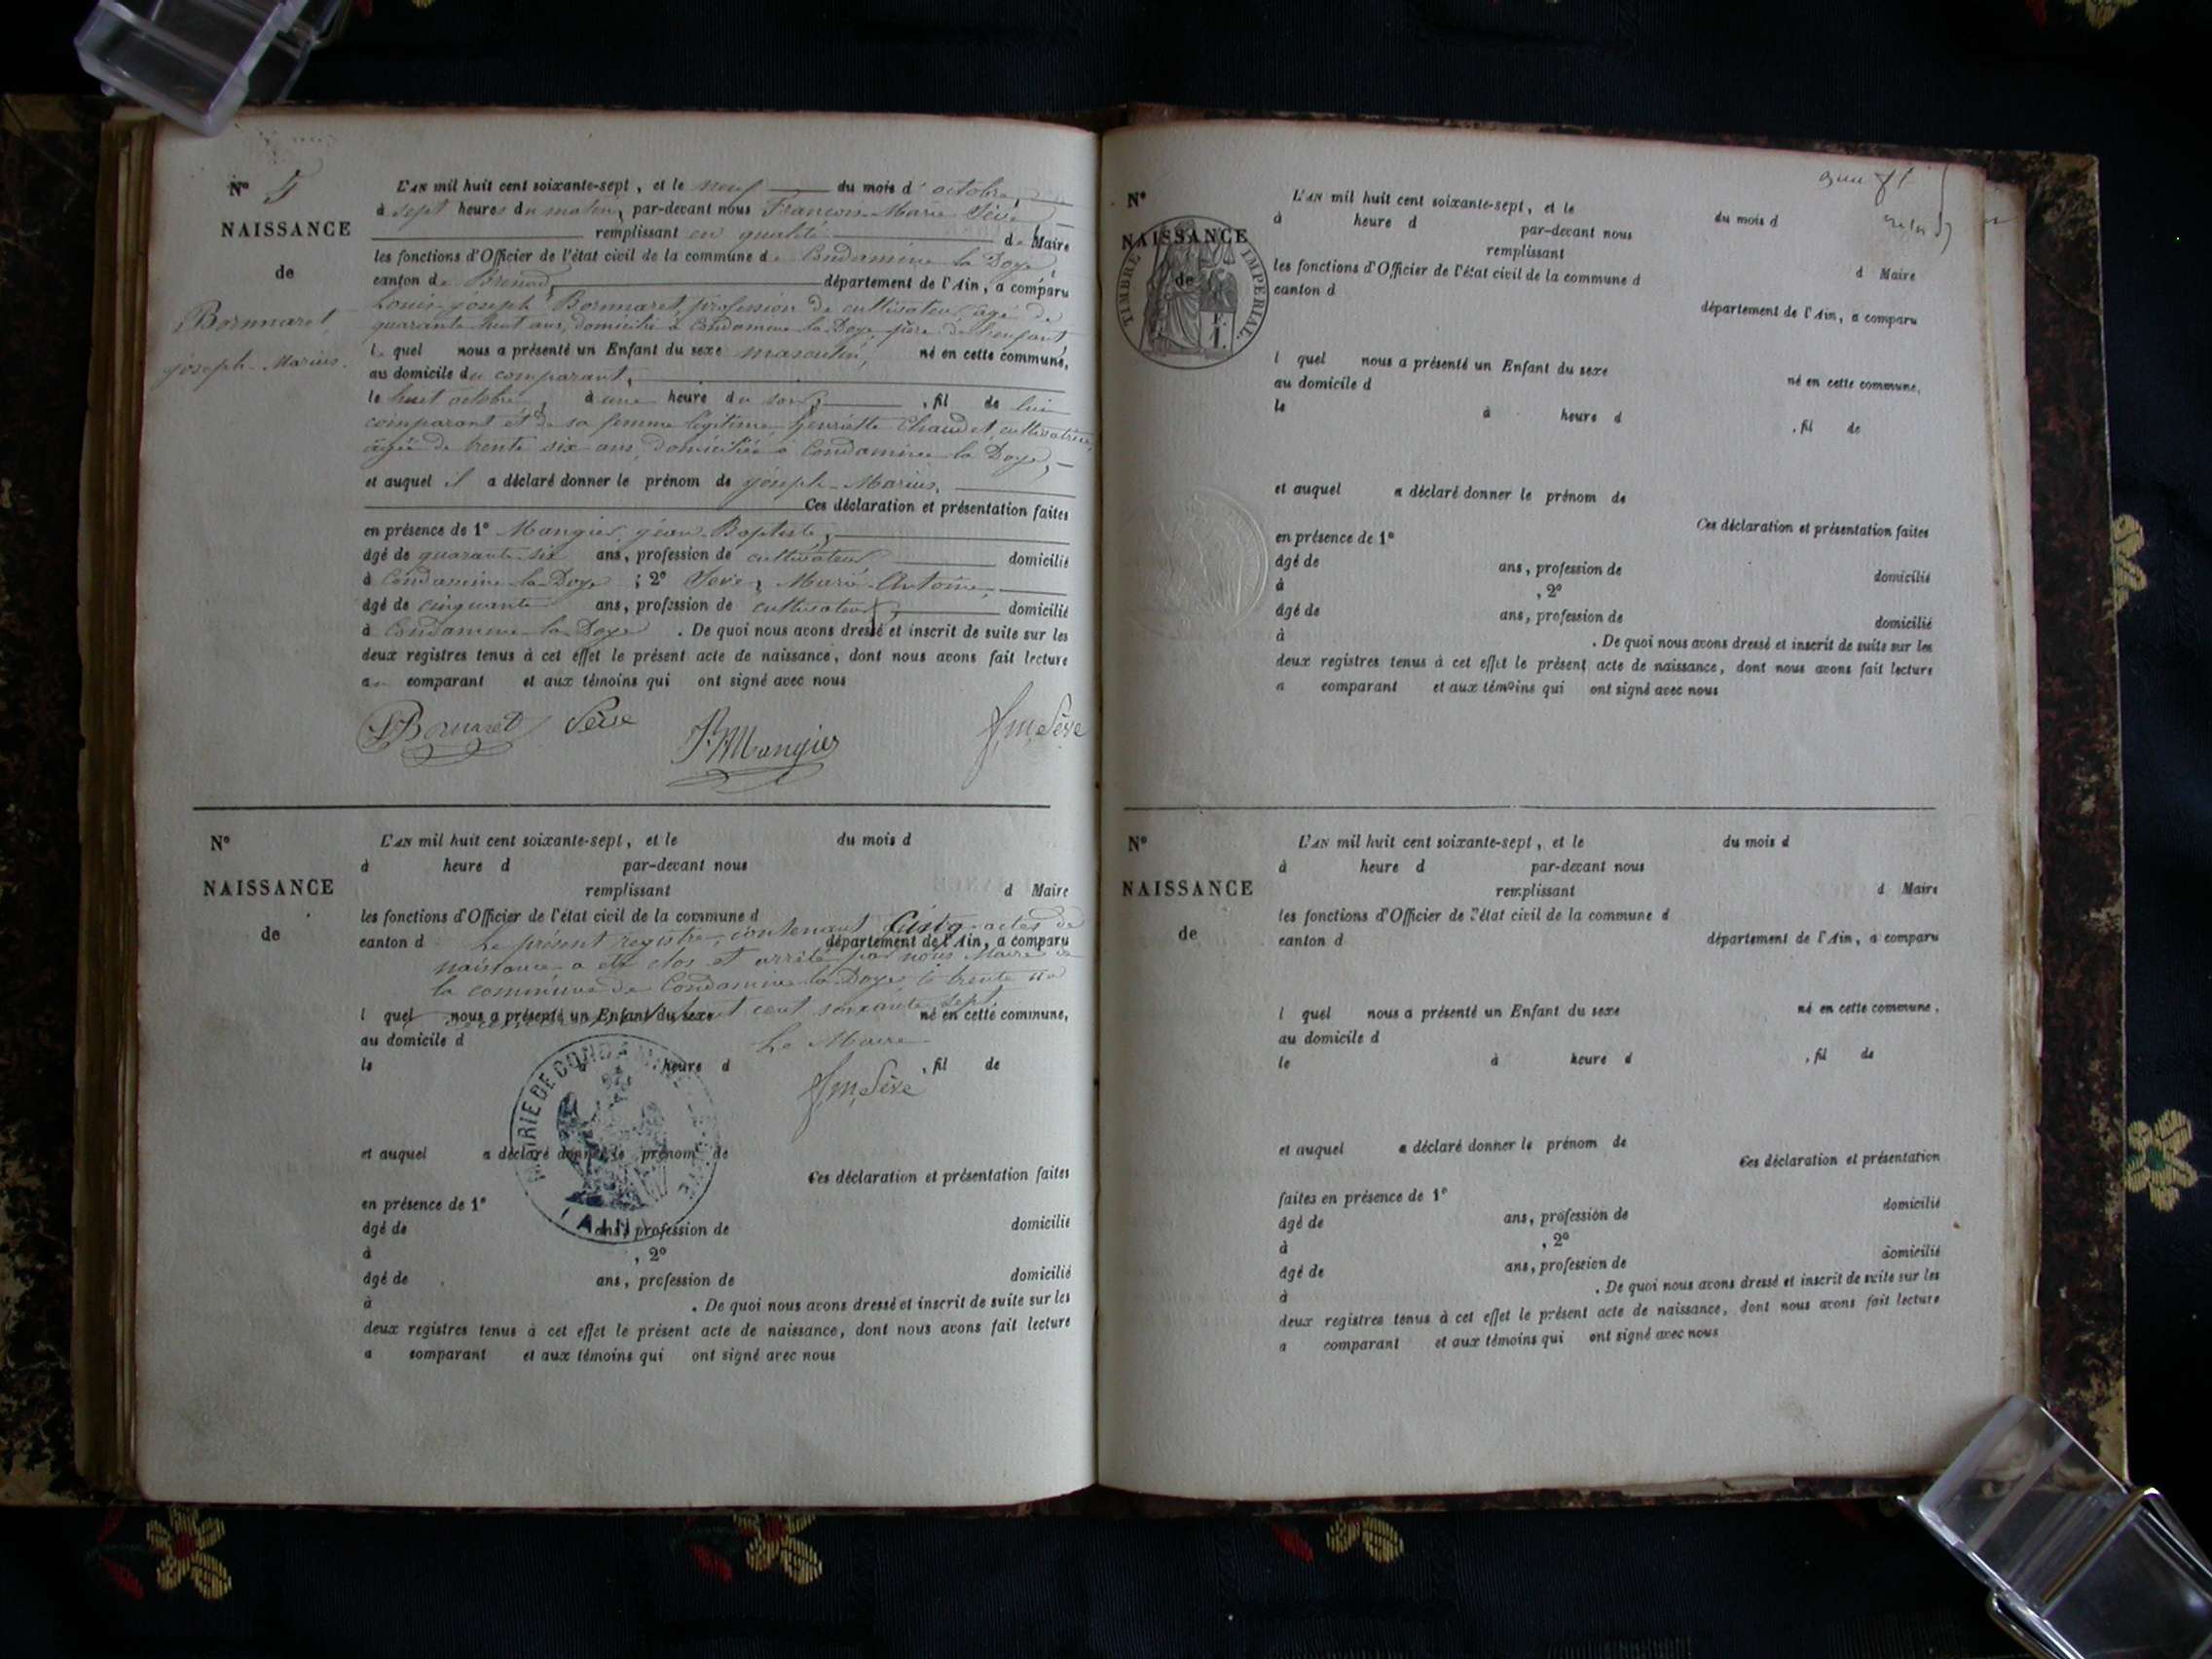 N° 5
NAISSANCE
de
Bornnaret
joseph-Marius.
L'AN mil huit cent soixante-sept, et le neuf du mois d'octobre,
à sept heures du matin, par-devant nous François-Marie Sève
remplissant en qualité de Maire
les fonctions d'Officier de l'état civil de la commune de Condamine la Doye,
canton de Brenod, département de l'Ain, a comparu
Louis-joseph Bornnaret, profession de cultivateur, âgé de
quarante huit ans, domicilié à Condamine la Doye, père de l'enfant,
lequel nous a présenté un Enfant du sexe masculin, né en cette commune,
au domicile du comparant,
le huit octobre, à une heure du soir, , fil de lui
comparant et de sa femme légitime henriette Chaudet, cultivatrice,
âgée de trente six ans, domiciliée à Condamine la Doye,
et auquel il a déclaré donner le prénom de joseph-Marius.
Ces déclaration et présentation faites
en présence de 1° Mangier, jean-Baptiste,
âgé de quarante-six ans, profession de cultivateur domicilié
à Condamine la Doye ; 2° Sève, Marie-Antoine,
âgé de cinquante ans, profession de cultivateur, domicilié
à Condamine la Doye. De quoi nous avons dressé et inscrit de suite sur les
deux registres tenus à cet effet le présent acte de naissance, dont nous avons fait lecture
au comparant et aux témoins qui ont signé avec nous
Sève
Mangier
fm Sève
N°
NAISSANCE
de
L'AN mil huit cent soixante-sept, et le du mois d
à heure d par-devant nous
remplissant d Maire
les fonctions d'Officier de l'état civil de la commune d
canton d département de l'Ain, a comparu
Le présent registre, contenant Cinq actes de
naissance a été clos et arrêté par nous Maire de
la commune de Condamine la Doye le trente un
huit cent soixante sept
l quel nous a présenté un Enfant du sexe né en cette commune,
au domicile d
Le Maire
le heure d , fil de
fm Sève
MAIRIE DE CONDAMINE
(AIN)
et auquel a déclaré donner le prénom de
Ces déclaration et présentation faites
en présence de 1°
âgé de ans, profession de domicilié
à , 2°
âgé de ans, profession de domicilié
à . De quoi nous avons dressé et inscrit de suite sur les
deux registres tenus à cet effet le présent acte de naissance, dont nous avons fait lecture
a comparant et aux témoins qui ont signé avec nous
N°
NAISSANCE
de
TIMBRE IMPERIAL.
F.
1.
L'AN mil huit cent soixante-sept, et le du mois d
à heure d par-devant nous
remplissant
d Maire
les fonctions d'Officier de l'état civil de la commune d
canton d département de l'Ain, a comparu
l quel nous a présenté un Enfant du sexe né en cette commune,
au domicile d
le à heure d , fil de
et auquel a déclaré donner le prénom de
Ces déclaration et présentation faites
en présence de 1°
âgé de ans, profession de domicilié
à , 2°
âgé de ans, profession de domicilié
à . De quoi nous avons dressé et inscrit de suite sur les
deux registres tenus à cet effet le présent acte de naissance, dont nous avons fait lecture
a comparant et aux témoins qui ont signé avec nous
N°
NAISSANCE
de
L'AN mil huit cent soixante-sept, et le du mois d
à heure d par-devant nous
remplissant d Maire
les fonctions d'Officier de l'état civil de la commune d
canton d département de l'Ain, a comparu
l quel nous a présenté un Enfant du sexe né en cette commune,
au domicile d
le à heure d , fil de
et auquel a déclaré donner le prénom de
Ces déclaration et présentation
faites en présence de 1° domicilié
âgé de ans, profession de
à , 2°
âgé de ans, profession de domicilié
à . De quoi nous avons dressé et inscrit de suite sur les
deux registres tenus à cet effet le présent acte de naissance, dont nous avons fait lecture
a comparant et aux témoins qui ont signé avec nous